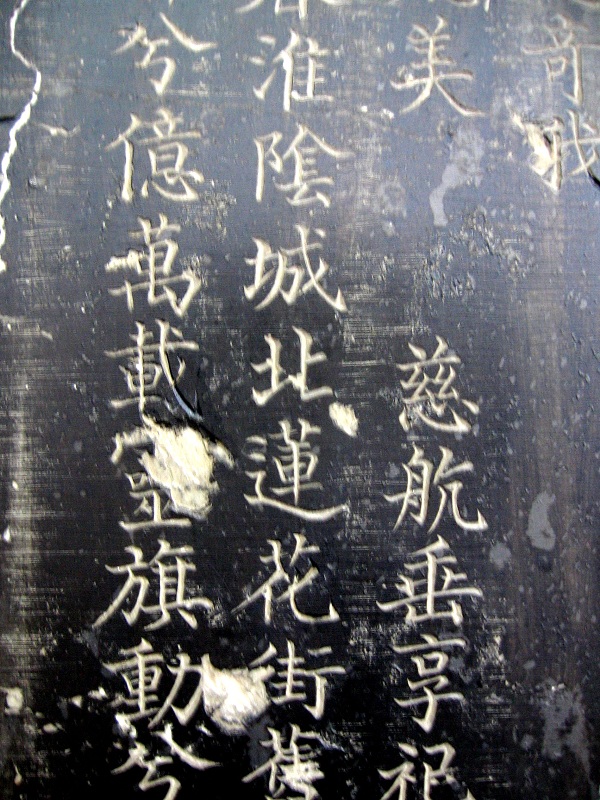 奇
美　慈航垂享祀
淮陰城北蓮花街舊
兮億萬載旗動兮